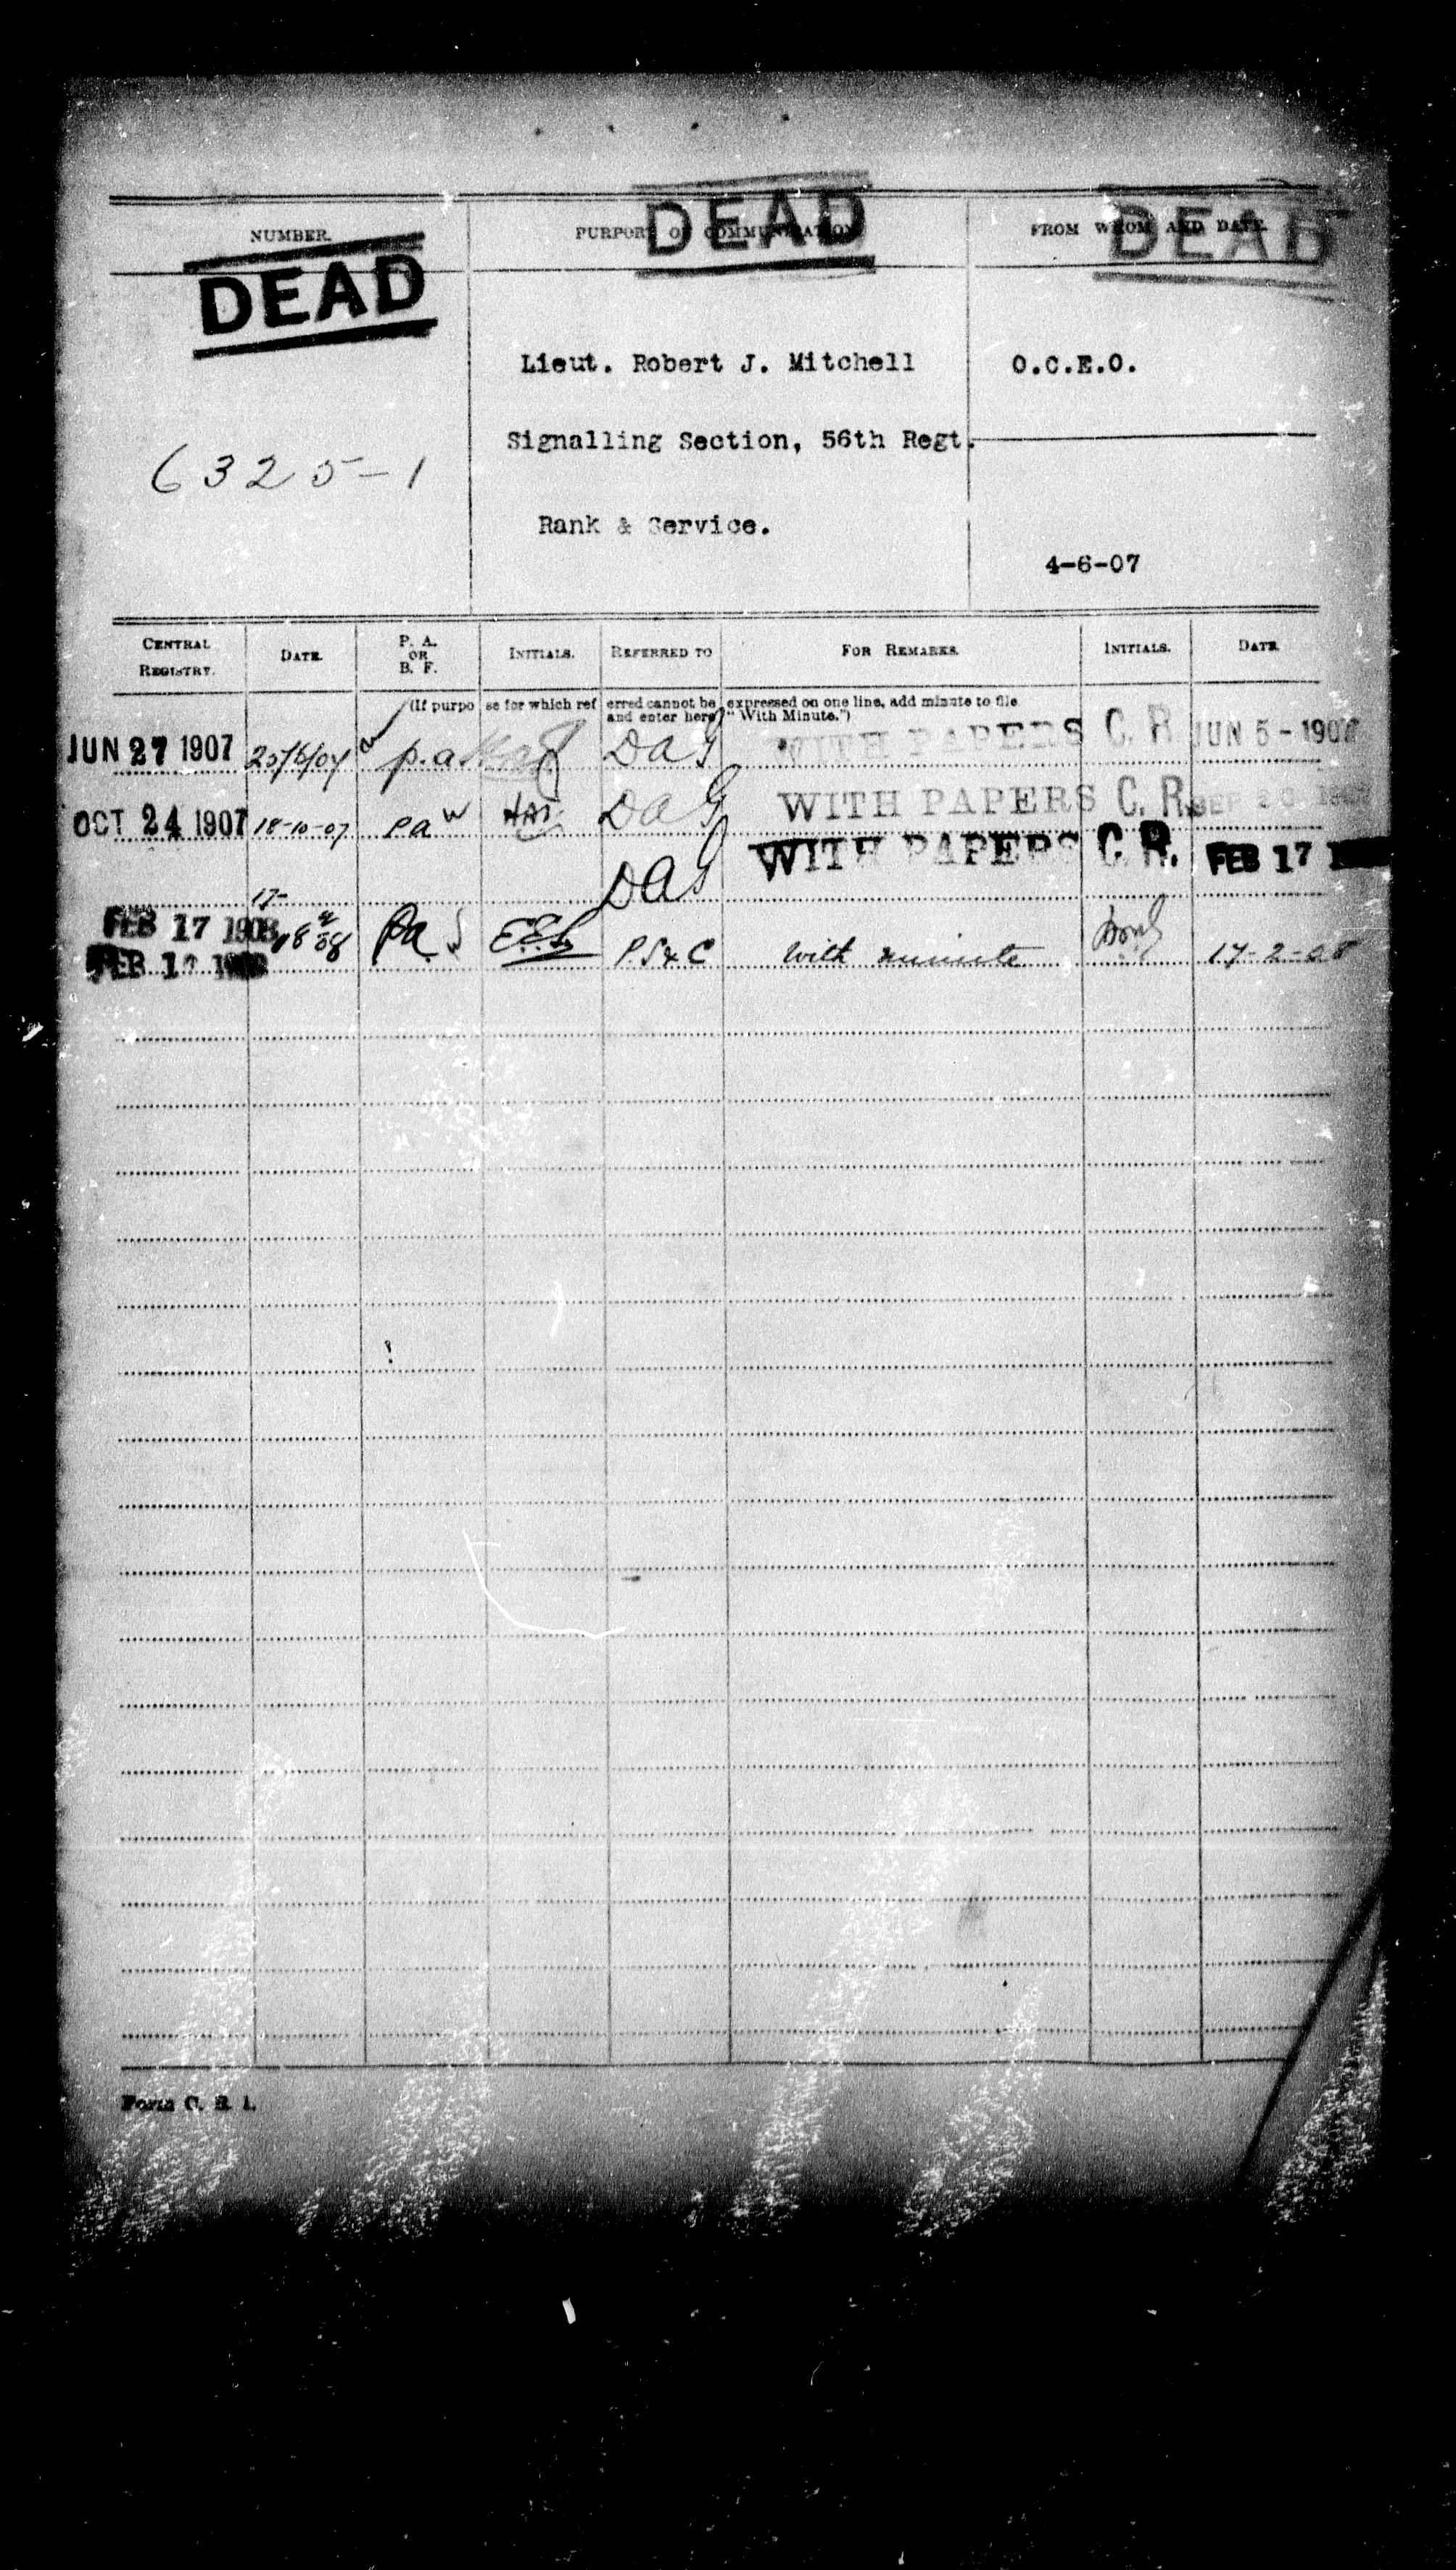 NUMBER. PURPORT OF COMMUNICATION FROM WHOM AND DATE.
DEAD DEAD DEAD
Lieut. Robert J. Mitchell O.C.E.O.
Signalling Section, 56th Regt.
6325-1
Rank & Service.
4-6-07
CENTRAL REGISTRY. DATE. P. A. OR B. F. INITIALS. REFERRED TO FOR REMARKS. INITIALS. DATE.
(If purpose for which referred cannot be expressed on one line, add minute to file
and enter here "With Minute.")
JUN 27 1907 p.a DAG WITH PAPERS C. R. JUN 5 - 1907
OCT 24 1907 18-10-07 Pa DAG WITH PAPERS C. R.
DAG WITH PAPERS C. R. FEB 17
17-
FEB 17 1908 Pa PS&C With minute 17-2-08
FEB 1908
Form C. R. 1.